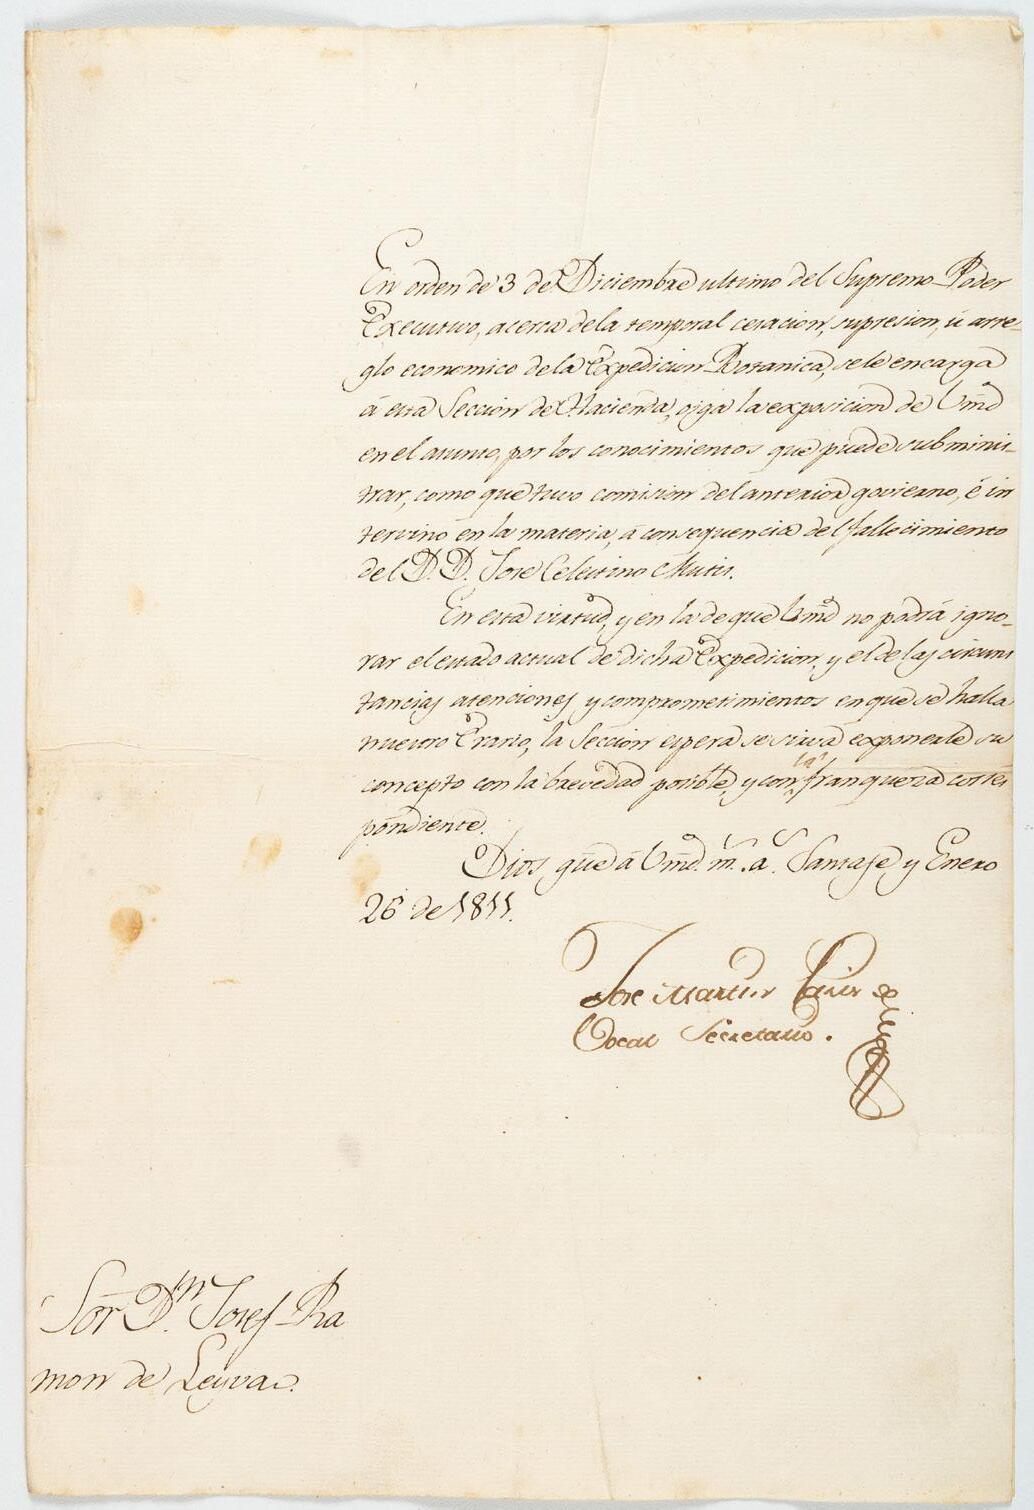 En orden de 3 de Diciembre ultimo del Supremo Poder
Executivo, acerca dela temporal cesacion, supresion, ú arre-
glo economico de la Expedicion Botanica, se le encarga
á esta Seccion de Hacienda, oiga la exposicion de Vmd
en el asunto, por los conocimientos que puede subminis-
trar, como que tuvo comision del anterior govierno, é in
tervino en la materia, á consequencia del fallecimiento
del D. D. Jose Celestino Mutis.
En esta virtud, y en la de que Vmd no podrá igno-
rar el estado actual de dicha Expedicion, y el de las circuns
tancias atenciones, y comprometimientos en que se halla
nuestro Erario, la Seccion espera se sirva exponerle su
concepto con la brevedad posible, y con la franqueza corres
pondiente.
Dios gue á Vmd. m.s a.s Santafe, y Enero
26 de 1811.
Jose Martin Paris
Vocal Secretario.
Sor Dn. Josef Ra
mon de Leyva.